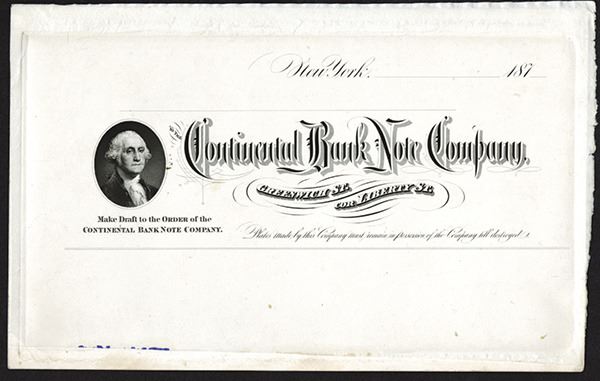 New York, 187
To the
Continental Bank Note Company,
GREENWICH ST.
COR LIBERTY ST.
Make Draft to the ORDER of the
CONTINENTAL BANK NOTE COMPANY.
Plates made by this Company must remain in possession of the Company till destroyed